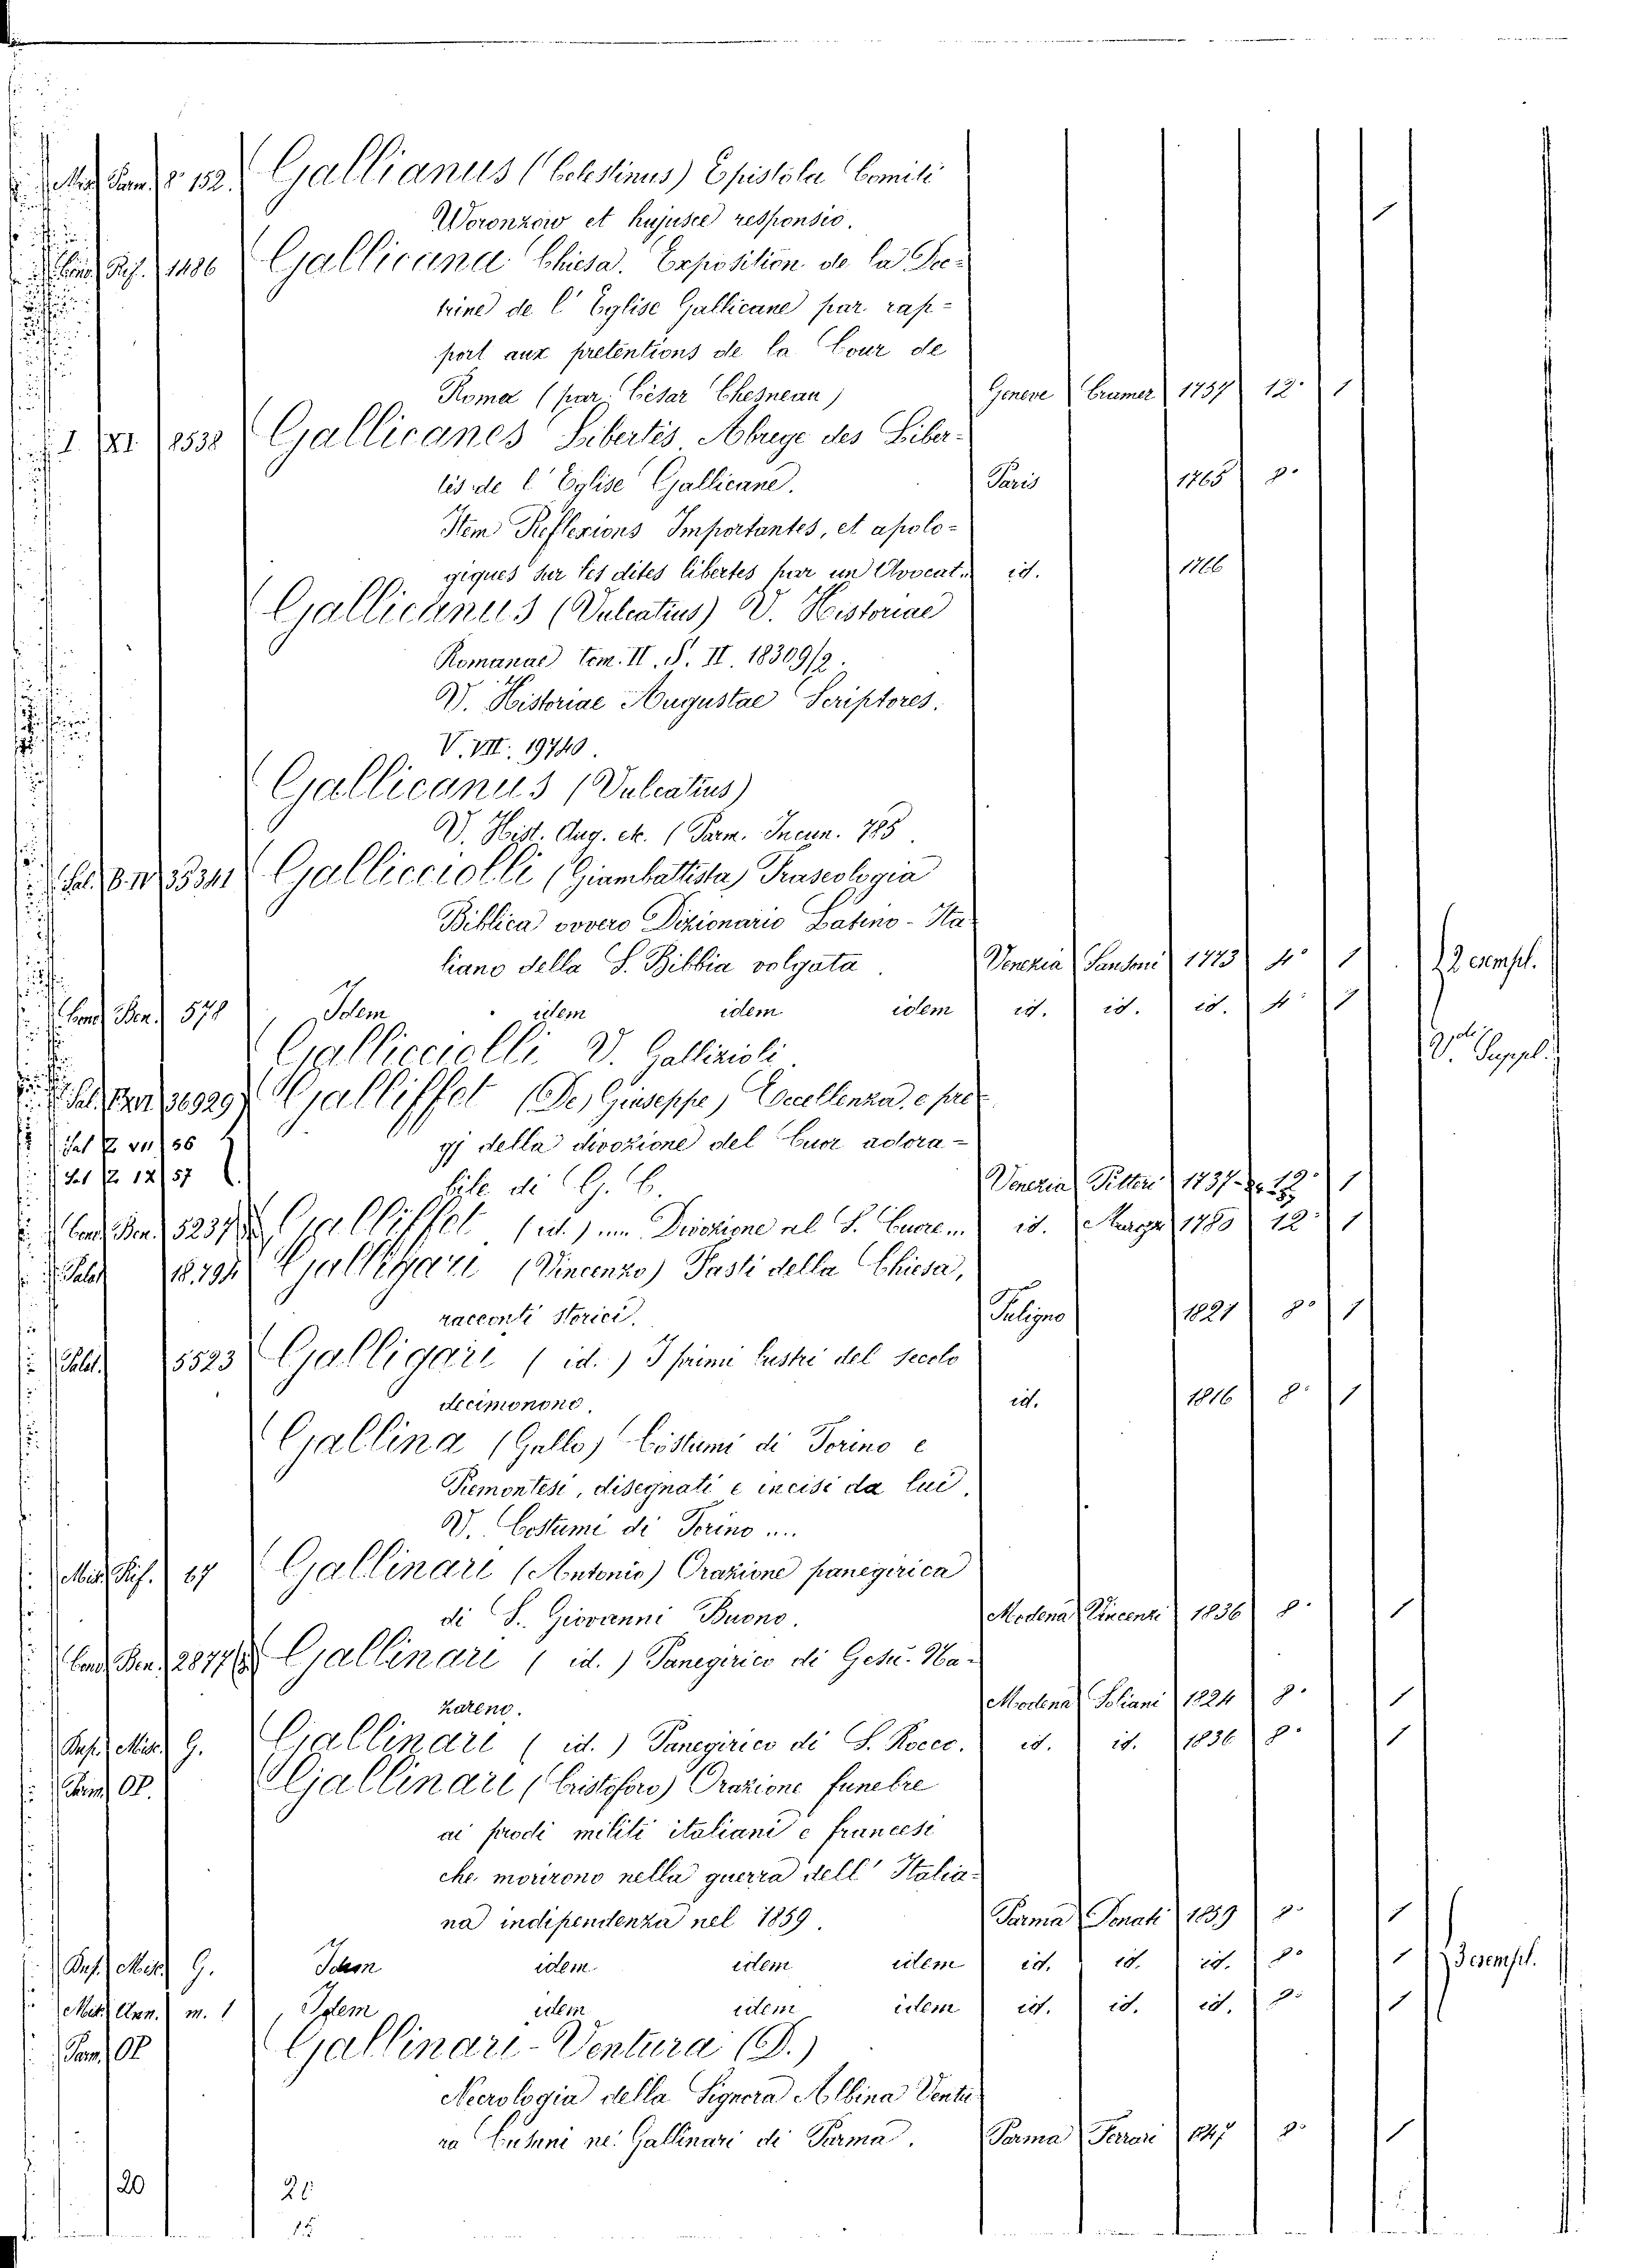 Misc. Parm. 8° 152. Gallianus (Celestinus) Epistola Comiti
Woronzow et hujusce responsio. 1
Rif. 1486 Gallicana Chiesa. Exposition de la Doc-
trine de l'Eglise Gallicane par rap-
port aux pretentions de la Cour de
Roma (par César Chesneau) Geneve Cramer 1757 12° 1
I XI 8538 Gallicanes Libertés Abrege des Liber-
tés de l'Eglise Gallicane. Paris 1765 8°
Item Reflexions Importantes, et apolo-
giques sur les dites libertes par un Avocat. id. 1766
Gallicanus (Vulcatius) V. Historiae
Romanae tom. II. S. II. 18309/2.
V. Historiae Augustae Scriptores.
V. VII. 19740.
Gallicanus (Vulcatius)
V. Hist. Aug. etc. (Parm. Incun. 785.
Sal. B. IV 35341 Gallicciolli (Giambattista) Fraseologia
Biblica ovvero Dizionario Latino-Ita-
liano della S. Bibbia volgata. Venezia Santoni 1773 4° 1 2 esempl.
Cond. Ben. 578 Idem idem idem idem id. id. id. 4° 1
Galliccielli V. Gallizioli. V. Suppl.
Sal. 36929 Galliffet (De) Giuseppe) Eccellenza, e pre-
Sal. Z. VII 56 gj della divozione del Cuor adora-
Sal. Z. 12 57 bile di G. C. Venezia Pitteri 1737 12° 1
Cond. Ben. 5237 Galliffet (id.) Divozione al S. Cuore id. 1780 12° 1
Palat. 18.794 Galligari (Vincenzo) Fasti della Chiesa,
racconti storici. Fuligno 1821 8° 1
Palat. 5523 Galligari (id.) I primi lustri del secolo
decimonono. id. 1816 8° 1
Gallina (Gallo) Costumi di Torino e
Piemontesi, disegnati e incisi da lui.
V. Costumi di Torino ....
Misc. Rif. 67 Gallinari (Antonio) Orazione panegirica
di S. Giovanni Buono. Modena Vincenzi 1836 8° 1
Cond. Ben. 2877 Gallinari (id.) Panegirico di Gesù Na-
zareno. Modena Soliani 1824 8° 1
Misc. G. Gallinari (id.) Panegirico di S. Rocco. id. id. 1836 8° 1
Parm. OP. Gallinari (Cristoforo) Orazione funebre
ai prodi militi italiani e francesi
che morirono nella guerra dell' Italia-
na indipendenza nel 1859. Parma Donati 1859 8° 1
Misc. G. Idem idem idem idem id. id. id. 8° 1 3 esempl.
Misc. Ann. m. 1 Idem idem idem idem id. id. id. 8° 1
Parm. OP Gallinari-Ventura (D.)
Necrologia della Signora Albina Ventu-
ra ne' Gallinari di Parma. Parma Ferrari 1847 8° 1
20 21
15